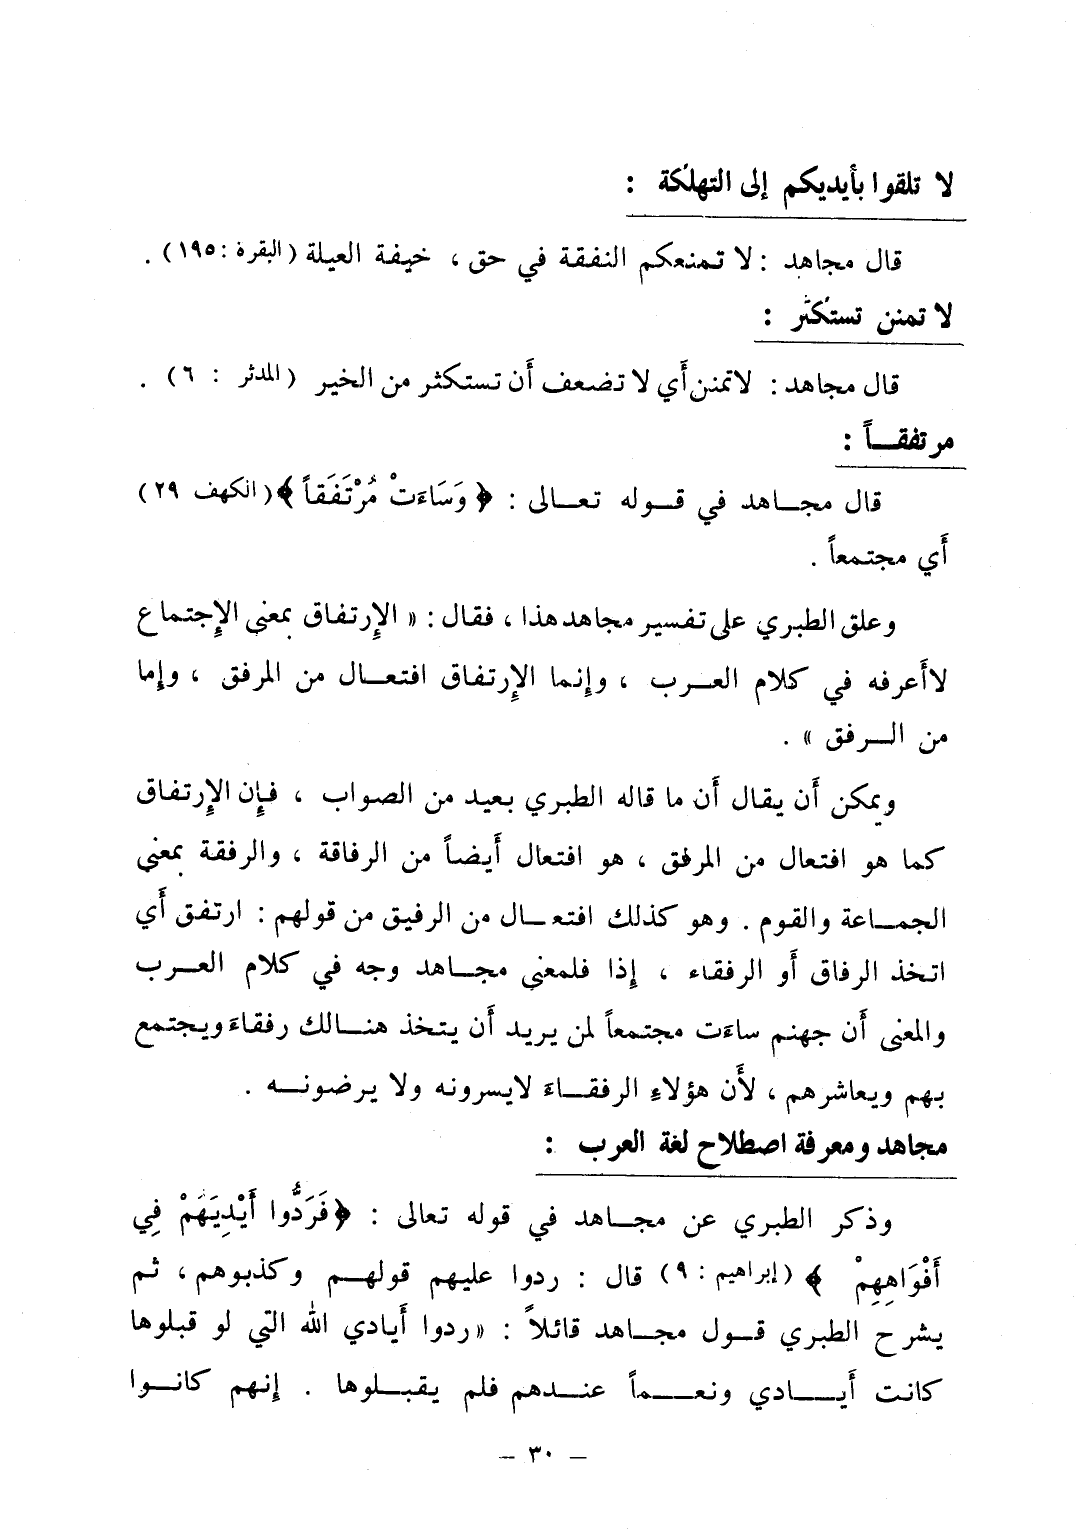 لا تلقوا بأيديكم إلى التهلُكة :
قال مجاهد : لا تمنعكم النفقة في حق ، خيفة العيلة (البقرة : ١٩٥) .
لا تمنن تستكْثر :
قال مجاهد : لاتمنن أي لا تضعف أن تستكثر من الخير (المدثر : ٦) .
مرتفقــاً :
قال مجــاهد في قــوله تعــالى : ﴿ وَسَاءَتْ مُرْتَفَقاً ﴾ (الكهف ٢٩)
أي مجتمعاً .
وعلق الطبري على تفسير مجاهد هذا ، فقال : « الإرتفاق بمعنى الإجتماع
لاأعرفه في كلام العــرب ، وإنما الإرتفاق افتعــال من المرفق ، وإما
من الــرفق » .
ويمكن أن يقال أن ما قاله الطبري بعيد من الصواب ، فإن الإرتفاق
كما هو افتعال من المرفق ، هو افتعال أيضاً من الرفاقة ، والرفقة بمعنى
الجمــاعة والقوم . وهو كذلك افتعــال من الرفيق من قولهم : ارتفق أي
اتخذ الرفاق أو الرفقاء ، إذا فلمعنى مجــاهد وجه في كلام العــرب
والمعنى أن جهنم ساءَت مجتمعاً لمن يريد أن يتخذ هنــالك رفقاءَ ويجتمع
بهم ويعاشرهم ، لأَن هؤلاءِ الرفقــاءَ لايسرونه ولا يرضونــه .
مجاهد ومعرفة اصطلاح لغة العرب :
وذكر الطبري عن مجــاهد في قوله تعالى : ﴿ فَرَدُّوا أَيْدِيَهُمْ فِي
أَفْوَاهِهِمْ ﴾ (إبراهيم : ٩) قال : ردوا عليهم قولهــم وكذبوهم ، ثم
يشرح الطبري قــول مجــاهد قائلاً : « ردوا أيادي الله التي لو قبلوها
كانت أيــــادي ونعــــماً عنــدهم فلم يقبــلوها . إنهم كانــوا
– ٣٠ –